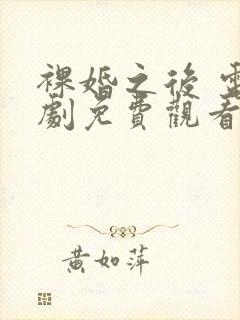 裸婚之後 電
劇免費觀看
黃如萍